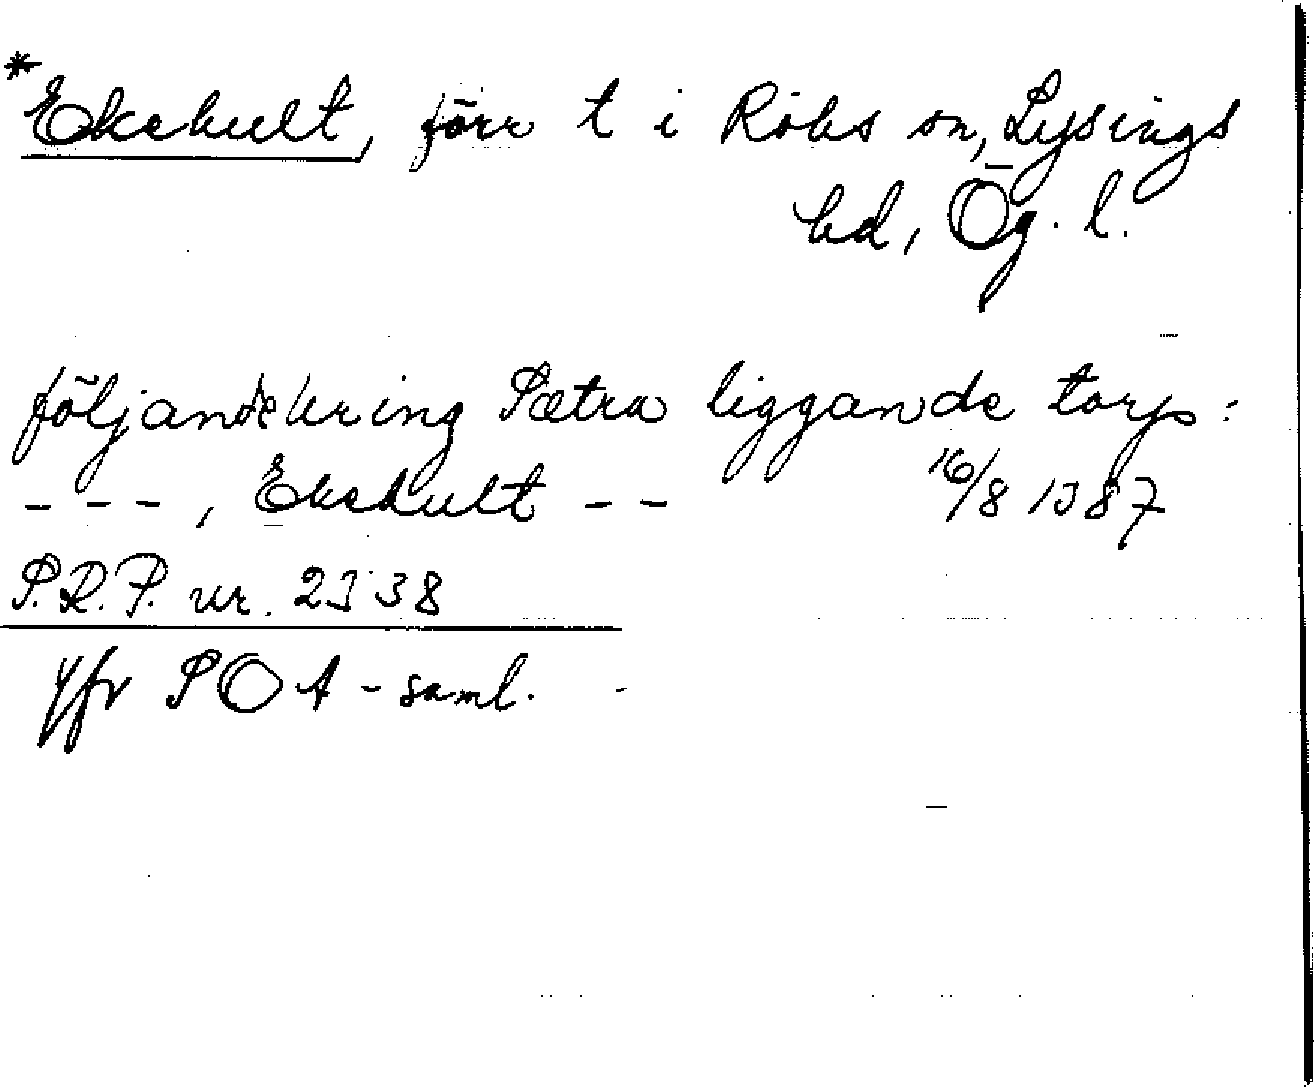 *Ekekult, förr t i Röks sn, Lysings
hd, Ög. l.
följande kring Sætra liggande torp:
- - - , Ekekult - - 16/8 1387
S.R.P. nr. 2538
Jfr SOA-saml.